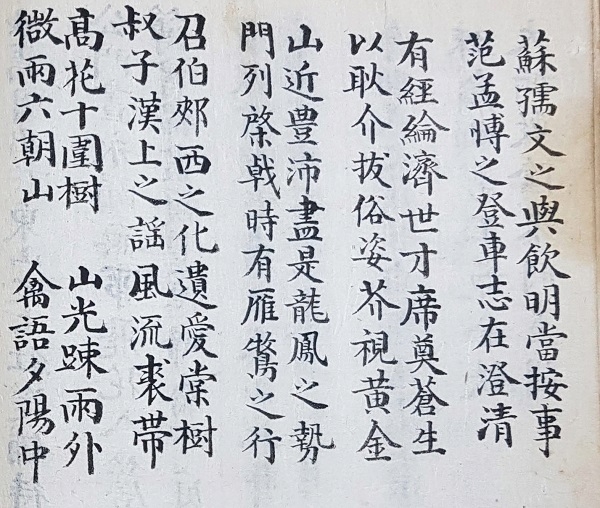 蘇孺文之與飲明當按事
范孟博之登車志在澄清
有經綸濟世才席奠蒼生
以耿介拔俗姿芥視黃金
山近豊沛盡是龍鳳之勢
門列棨戟時有雁鶩之行
召伯郊西之化遺愛棠樹
叔子漢上之謡風流裘帶
髙花十圍樹 山光踈雨外
微雨六朝山 禽語夕陽中